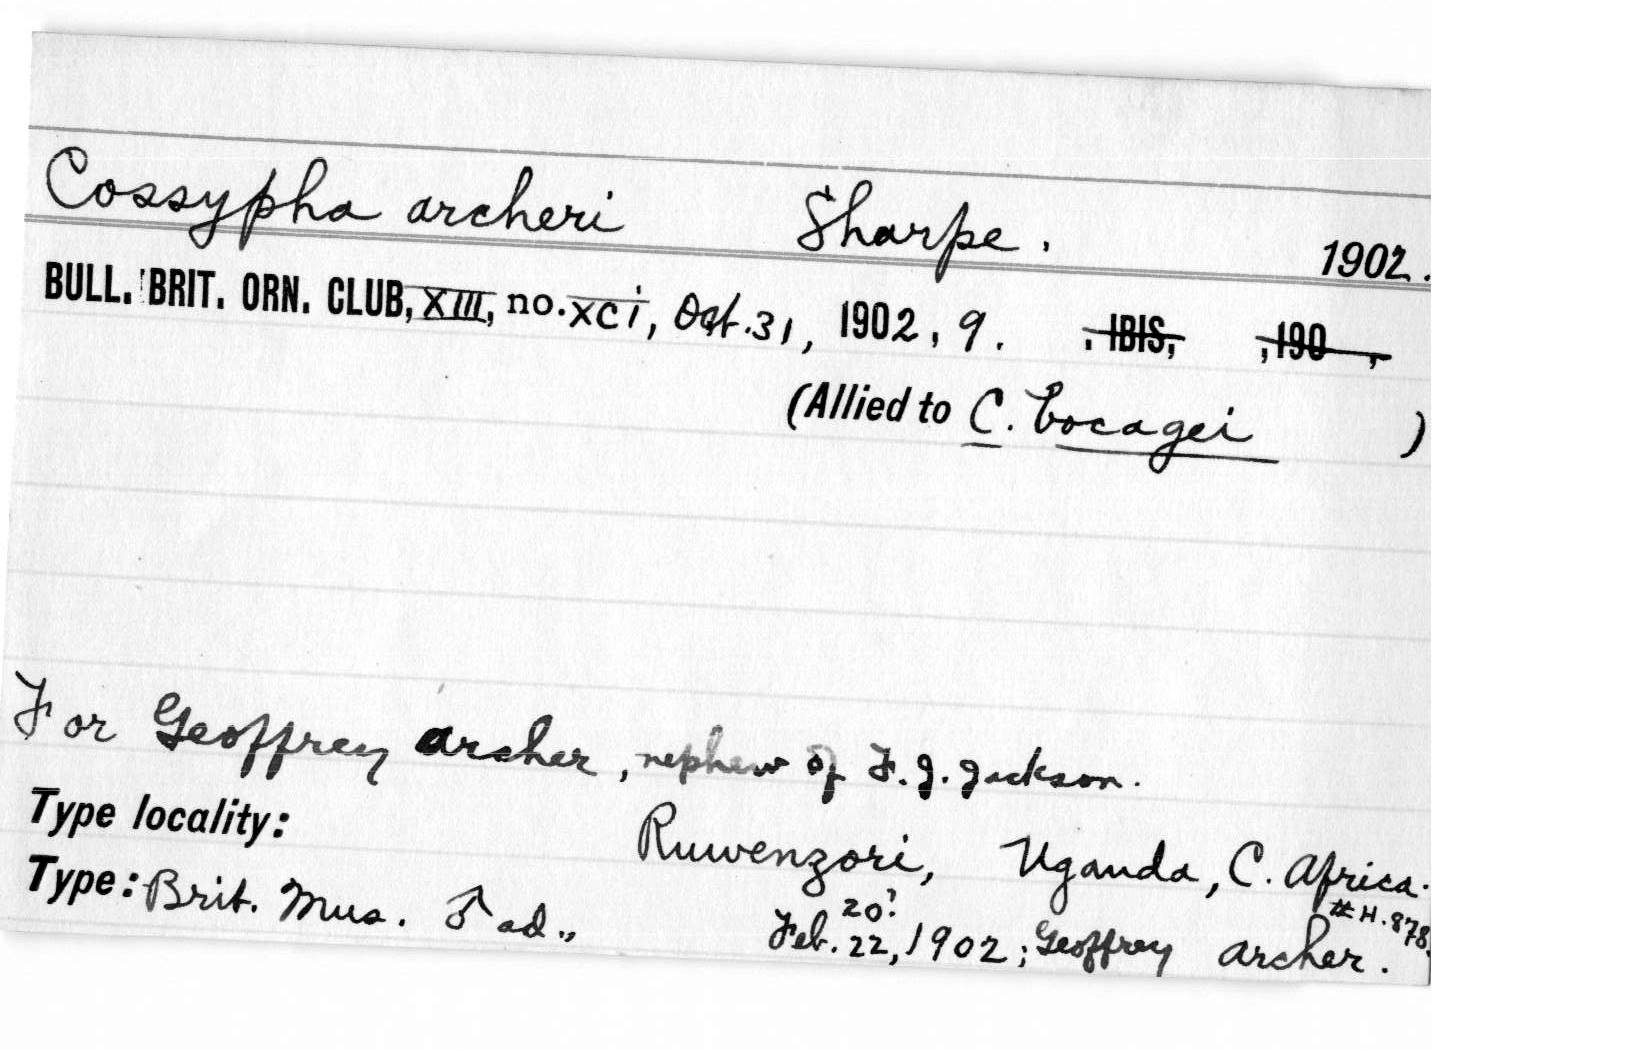 Cossypha archeri Sharpe. 1902.
BULL. BRIT. ORN. CLUB, XIII, no. xci, Oct. 31, 1902, 9. , IBIS, ,190 ,
(Allied to C. bocagei )
For Geoffrey Archer, nephew of F. J. Jackson.
Type locality: Ruwenzori, Uganda, C. Africa.
Type: Brit. Mus. ♂ ad., Feb. 22, 1902; Geoffrey Archer.
20?
#H.878.